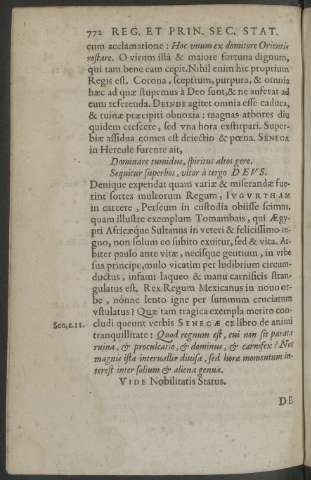 772 REG. ET PRIN. SEC. STAT.
cum acclamatione: Hoc unum ex domitore Orientis
restare. O virum illâ & maiore fortuna dignum,
qui tam bene eam cepit. Nihil enim hic proprium
Regis est. Corona, sceptrum, purpura, & omnia
hæc ad quæ stupemus à Deo sunt, & ne auferat ad
eum referenda. DEINDE agitet omnia esse caduca,
& ruinæ præcipiti obnoxia: magnas arbores diu
quidem crescere, sed vna hora exstirpari. Super-
biæ assidua comes est deiectio & pœna. SENECA
in Hercule furente ait,
Dominare tumidus, spiritus altos gere.
Sequitur superbos, vltor à tergo DEVS.
Denique expendat quam variæ & miserandæ fue-
rint sortes multorum Regum, IVGVRTHAM
in carcere, Perseum in custodia obiisse scimus.
quam illustre exemplum Tomambais, qui Ægy-
pti Africæque Sultanus in veteri & felicissimo re-
gno, non solum eo subito exuitur, sed & vita. Ar-
biter paulo ante vitæ, necisque gentium, in vrbe
sua principe, mulo vicatim per ludibrium circum-
ductus, infami laqueo & manu carnificis stran-
gulatus est. Rex Regum Mexicanus in nouo or-
be, nonne lento igne per summum cruciatum
vstulatus? Quæ tam tragica exempla merito con-
Sen. c. 11. cludi queunt verbis SENECÆ ex libro de animi
tranquillitate: Quod regnum est, cui non sit parata
ruina, & proculcatio, & dominus, & carnifex? Nec
magnis ista interuallis diuisa, sed horæ momentum in-
terest inter solium & aliena genua.
VIDE Nobilitatis Status.
DE